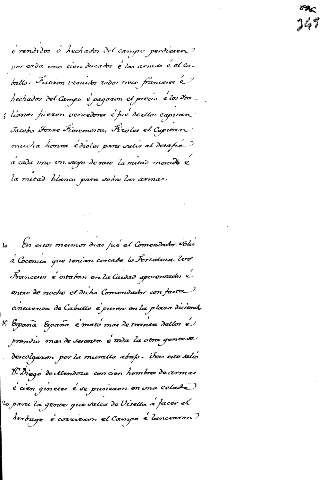 349
ó rendidos ó hechados del campo perdiesen
por cada uno cien ducados é las armas é el ca-
ballo. Fueron vencidos todos trece franceses é
hechados del Campo é pagaron el precio é los Ita-
lianos fueron vencedores é fué dellos capitan
el Capitan
mucha honra é dioles para salir al desafio
á cada uno un sayo de raso la mitad morado é
la mitad blanco para sobre las armas.
En estos mesmos dias fué el Comendador Solis
á Cosencia que tenian cercada la Fortaleza los
Franceses é estaban en la Ciudad aposentados é
entró de noche el dicho Comendador con fasta
cincuenta de Caballo é pusose en la plaza diciendo
España España é mató mas de treinta dellos é
prendió mas de sesenta é toda la otra gente se
descolgaron por la muralla abajo. Tras esto salió
Dn. Diego de Mendoza con cien hombres de armas
é cien ginetes é se pusieron en una celada
para la gente que salia de Viseli á facer el
herbage é corrieron el Campo é